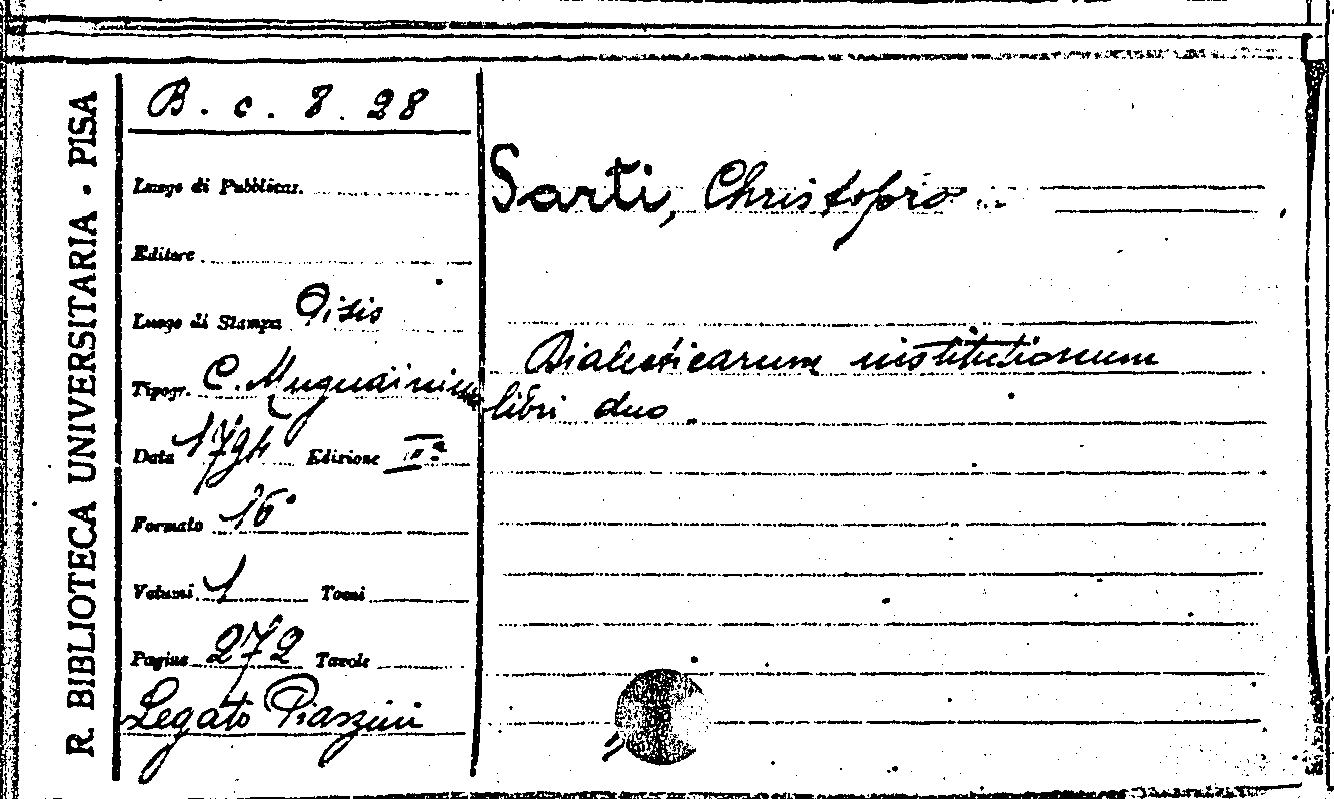 R. BIBLIOTECA UNIVERSITARIA · PISA
B. c. 8. 28
Luogo di Pubblicaz.
Editore
Luogo di Stampa Pisis
Tipogr. C. Mugnainius
Data 1794 Edizione IIª
Formato 16°
Volumi 1 Tomi
Pagine 272 Tavole
Legato Piazzini
Sarti, Christofpro
Dialecticarum institutionum
libri duo.